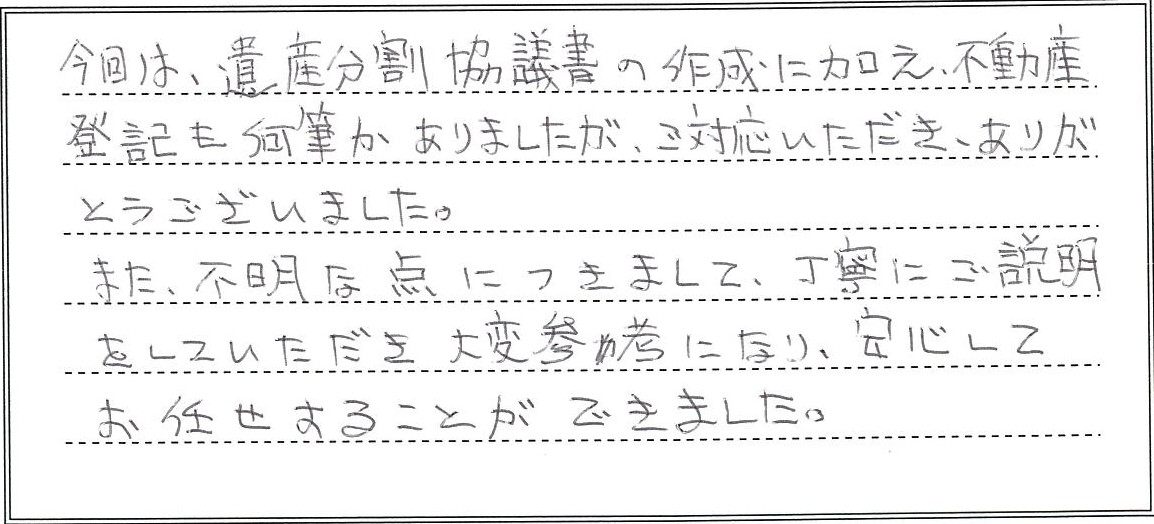 今回は、遺産分割協議書の作成に加え、不動産
登記も何筆かありましたが、ご対応いただき、ありが
とうございました。
また、不明な点につきまして、丁寧にご説明
をしていただき大変参考になり、安心して
お任せすることができました。